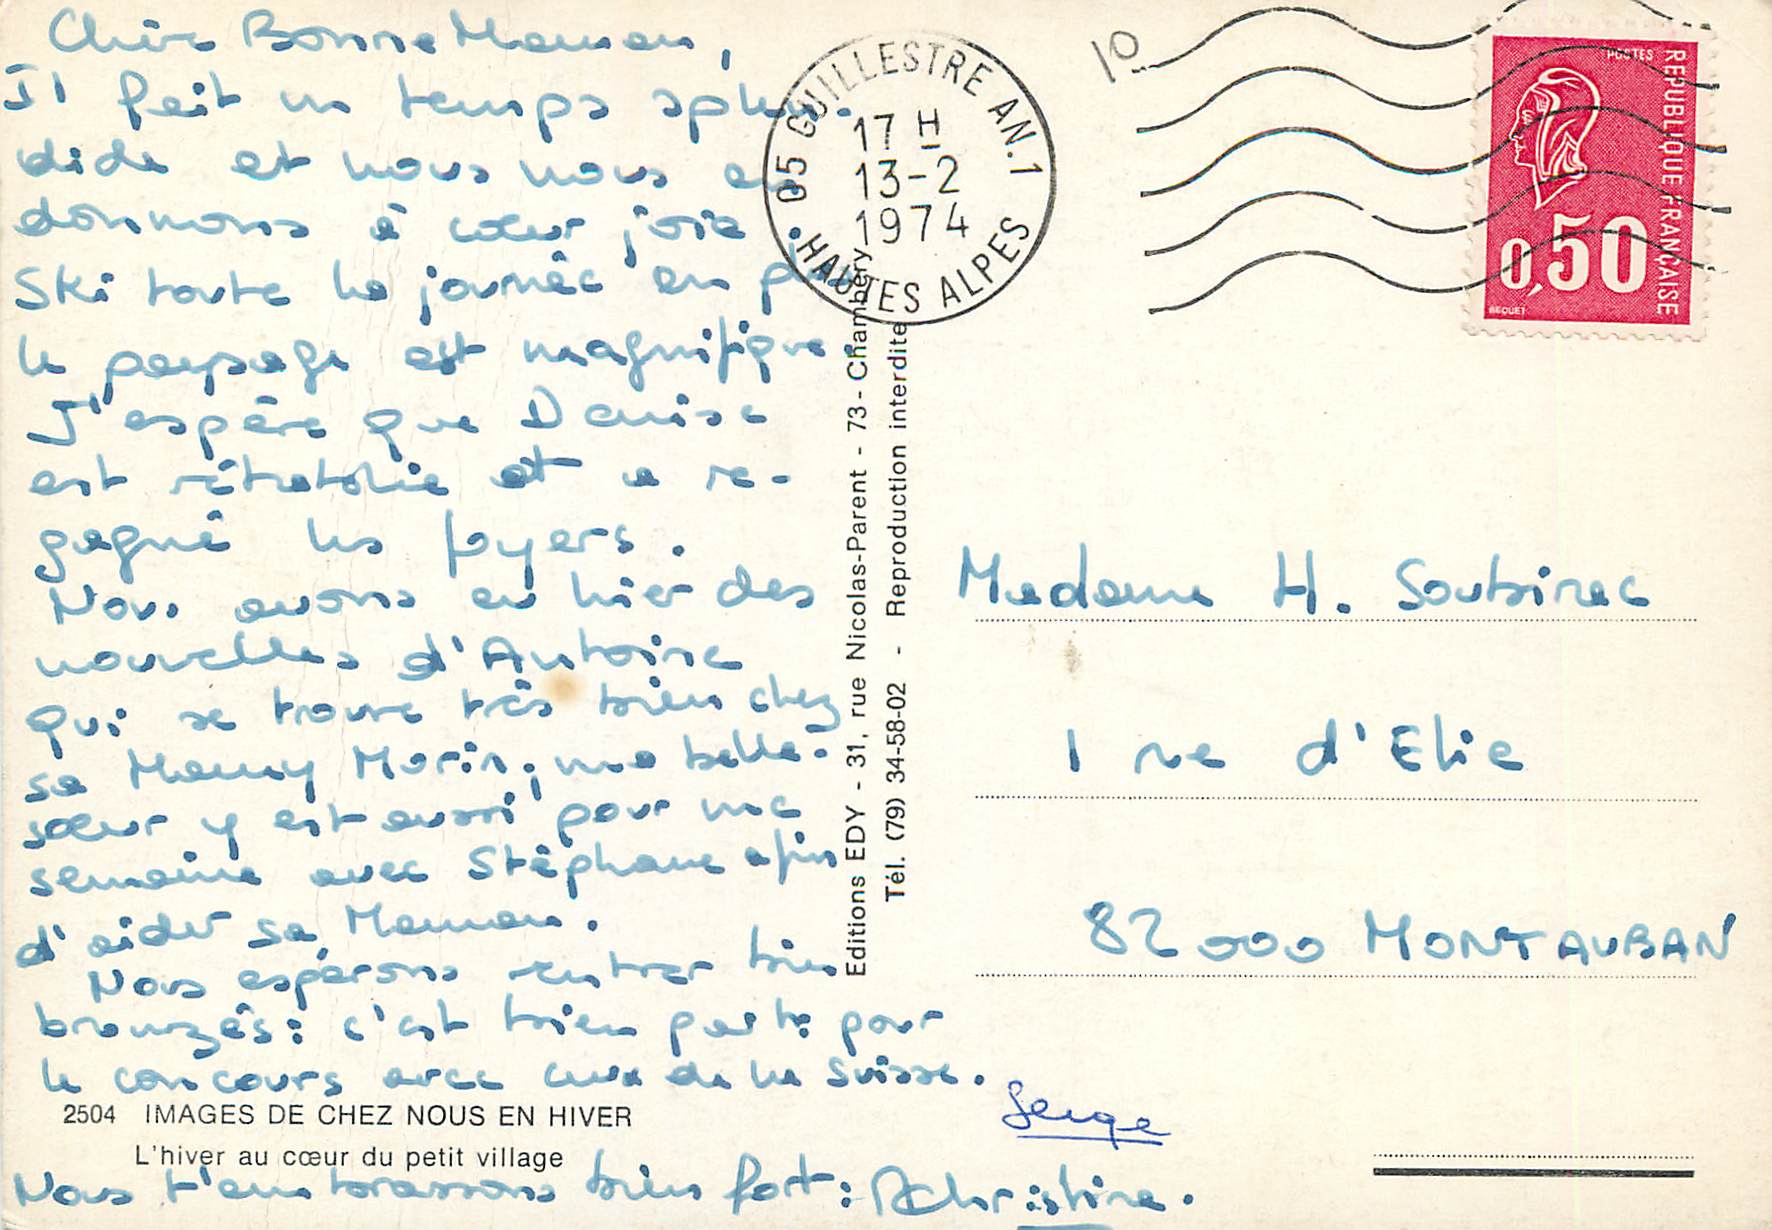 Chère Bonne Maman,
Il fait un temps splen-
dide et nous nous en
donnons à cœur joie.
Ski toute la journée en plus
le paysage est magnifique
J'espère que Denise
est rétablie et a re-
gagné les foyers.
Nous avons eu hier des
nouvelles d'Antoine
qui se trouve très bien chez
sa Mamy Morin, ma belle-
sœur y est aussi pour une
semaine avec Stéphane afin
d'aider sa Maman.
Nous espérons rentrer bien
bronzés : c'est bien parti pour
le concours avec ceux de la Suisse.
Serge
2504 IMAGES DE CHEZ NOUS EN HIVER
L'hiver au cœur du petit village
Nous t'embrassons bien fort : Christine.
Editions EDY - 31, rue Nicolas-Parent - 73 - Chambéry
Tél. (79) 34-58-02 - Reproduction interdite
05 GUILLESTRE AN.1
17 H
13-2
1974
HAUTES ALPES
10
POSTES
REPUBLIQUE FRANÇAISE
0,50
BEQUET
Madame H. Soubirac
1 rue d'Elie
82000 MONTAUBAN